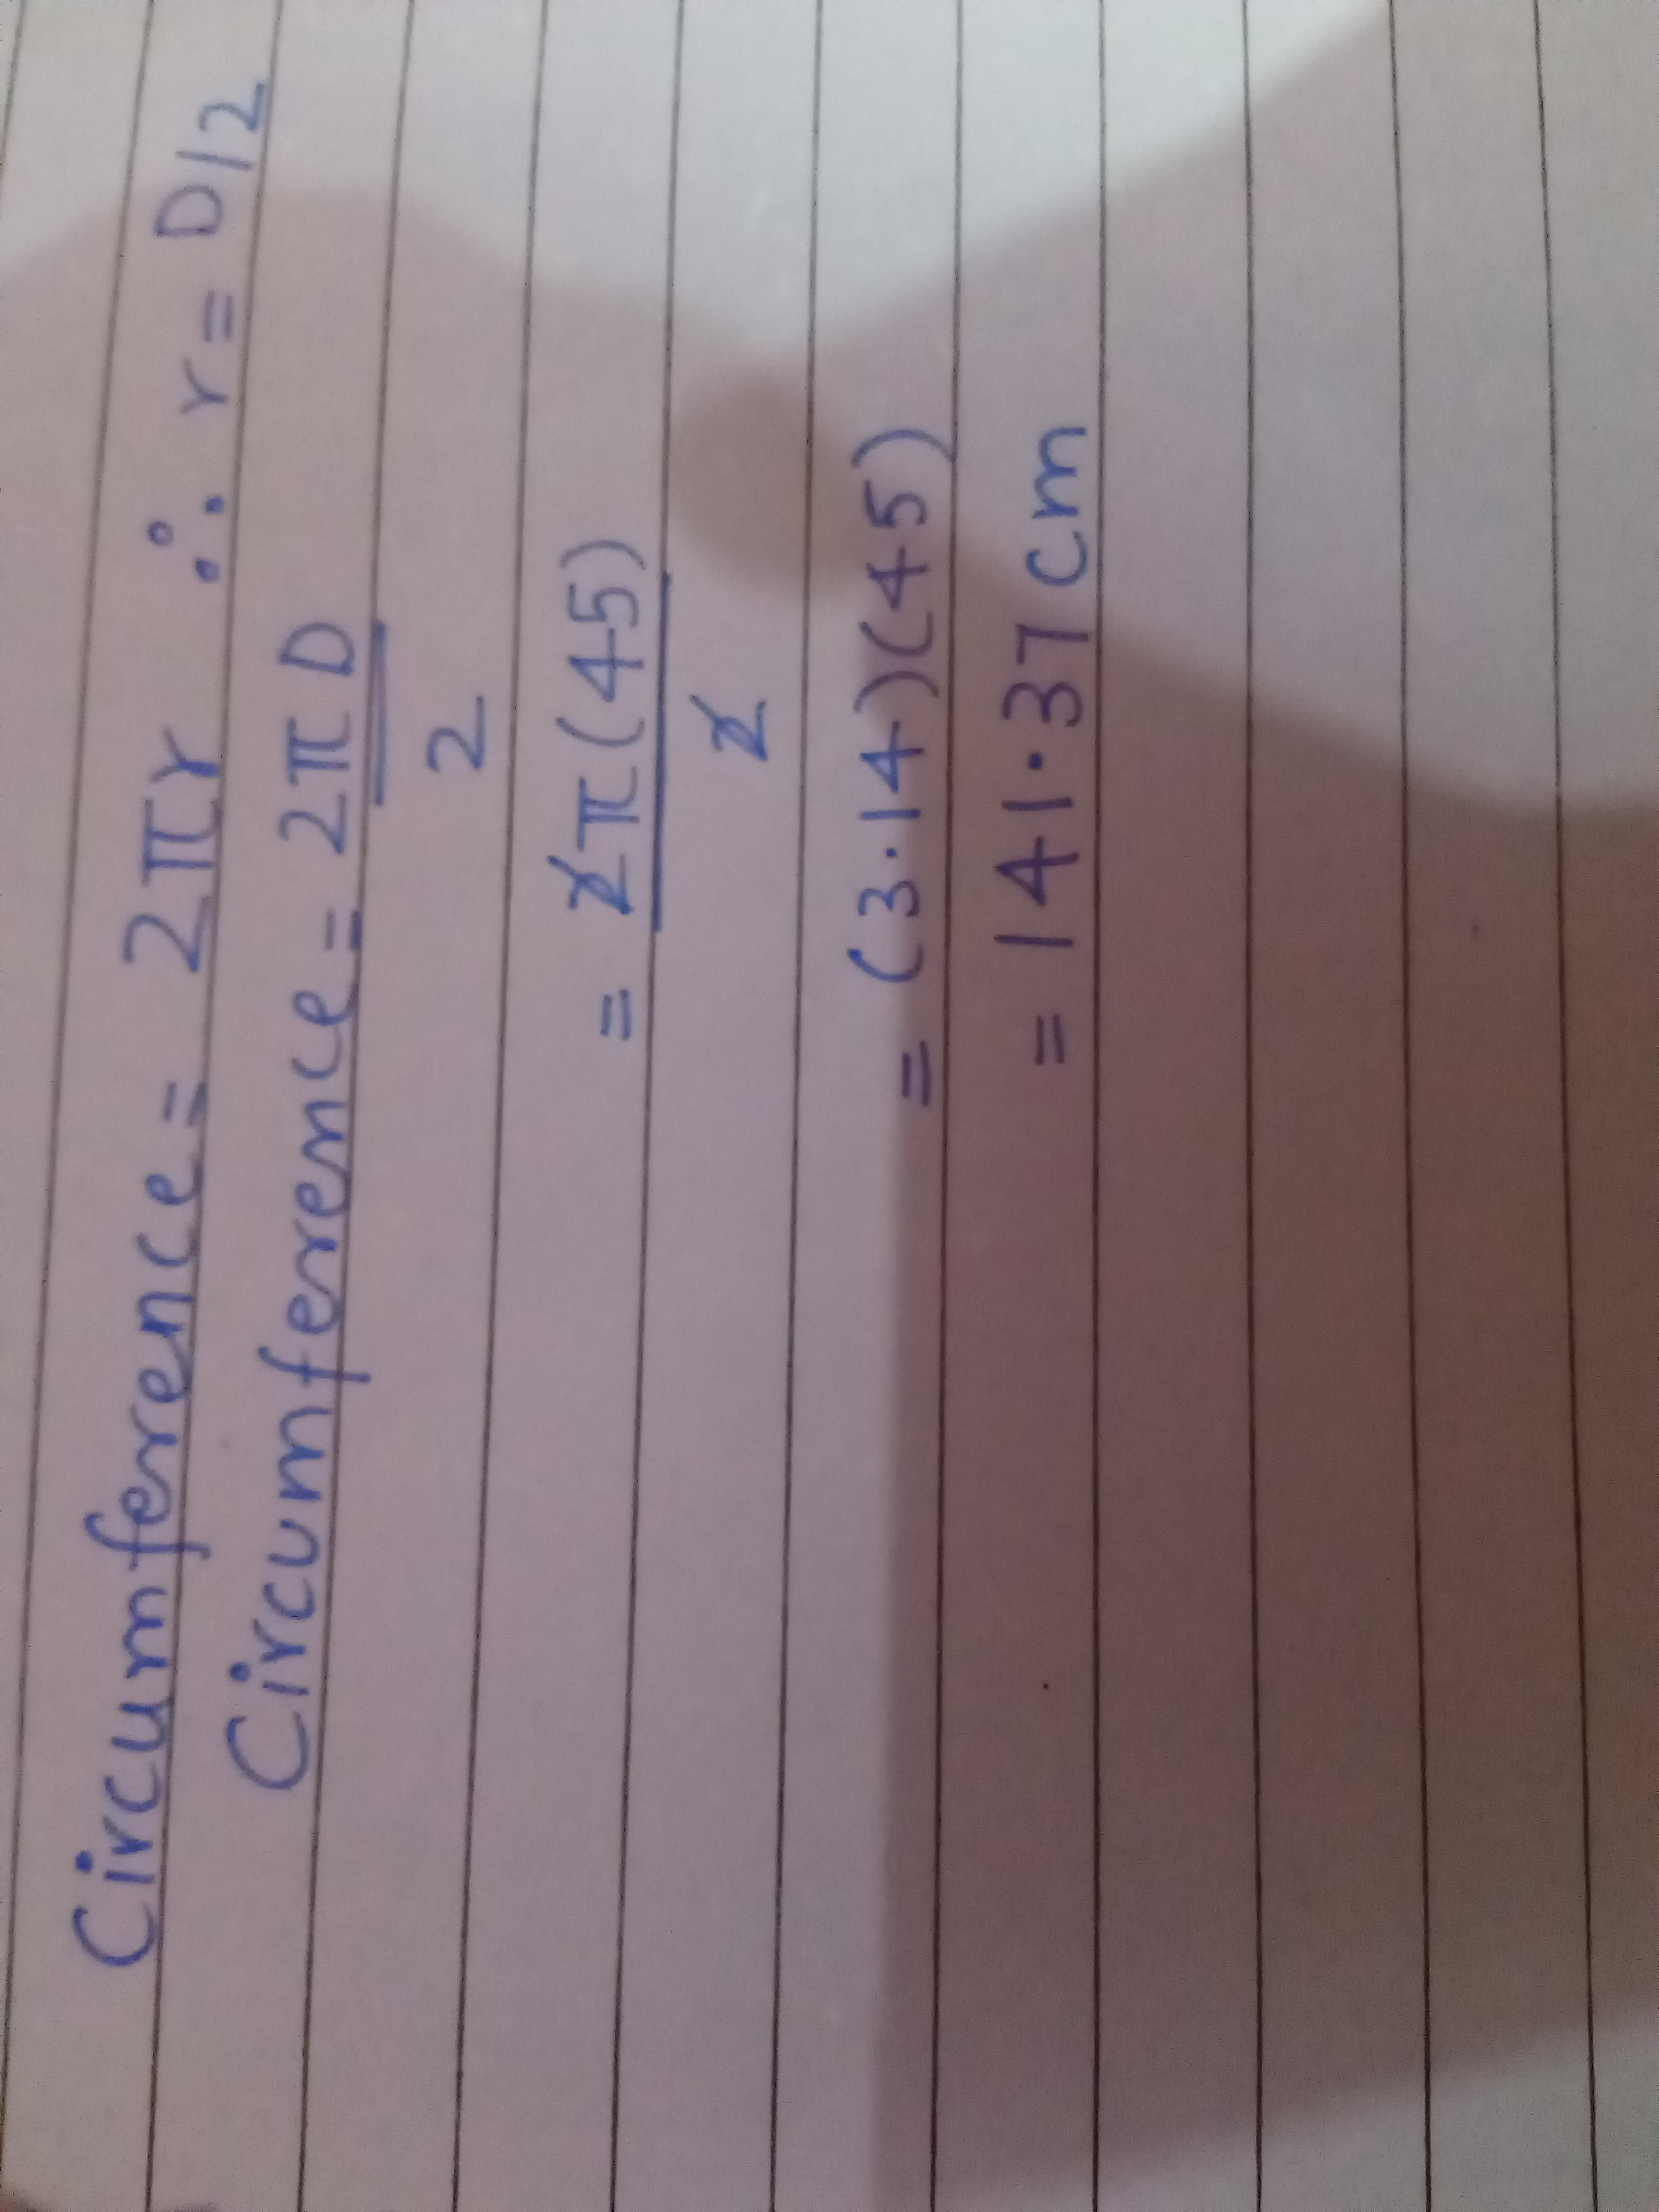 Circumference = 2πr ∴ r = D/2
Circumference = 2πD
2
= 2π(45)
2
= (3.14)(45)
= 141.37 cm